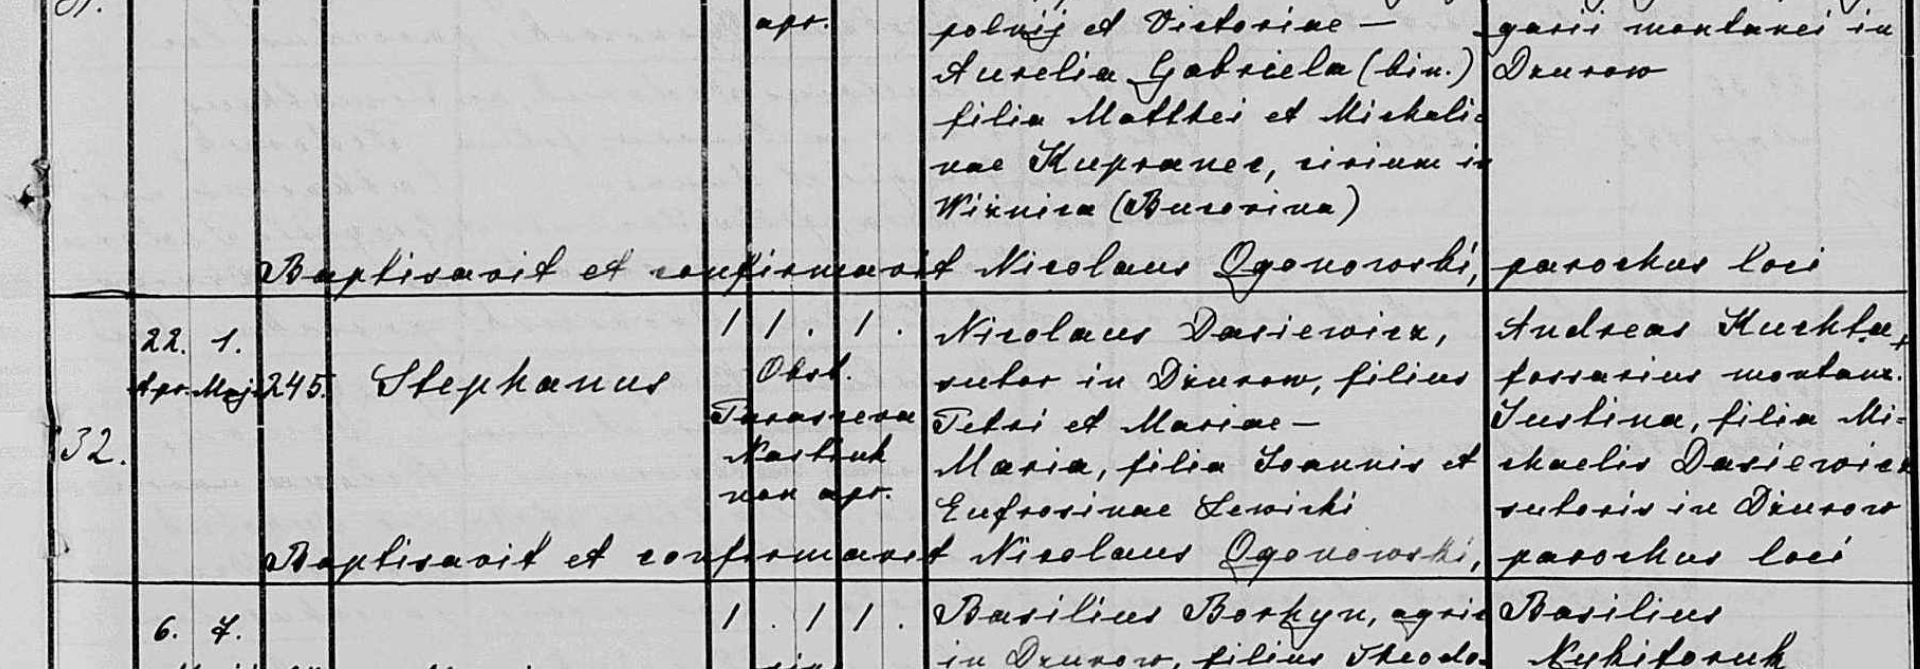 apr.
polnij et Victoriae —
garii montanei in
Aurelia Gabriela (bin.)
Dzurow
filia Matthei et Michali-
nae Kupranec, civium in
Wiznica (Bucovina)
Baptisavit et confirmavit Nicolaus Ogonowski, parochus loci
32.
22. 1.
Apr. Maji 245. Stephanus
1 1 . 1 .
Obst.
Parasceva
Nastiuk
non apr.
Nicolaus Dasiewicz,
sutor in Dzurow, filius
Petri et Mariae —
Maria, filia Joannis et
Eufrosinae Lewicki
Andreas Kuchta,
fossarius montan.
Justina, filia Mi-
chaelis Dasiewicz
sutoris in Dzurow
Baptisavit et confirmavit Nicolaus Ogonowski, parochus loci
6. 7.
1 . 1 1 .
Basilius Borhyn, agric
in Dzurow, filius Theodo-
Basilius
Nykiforuk